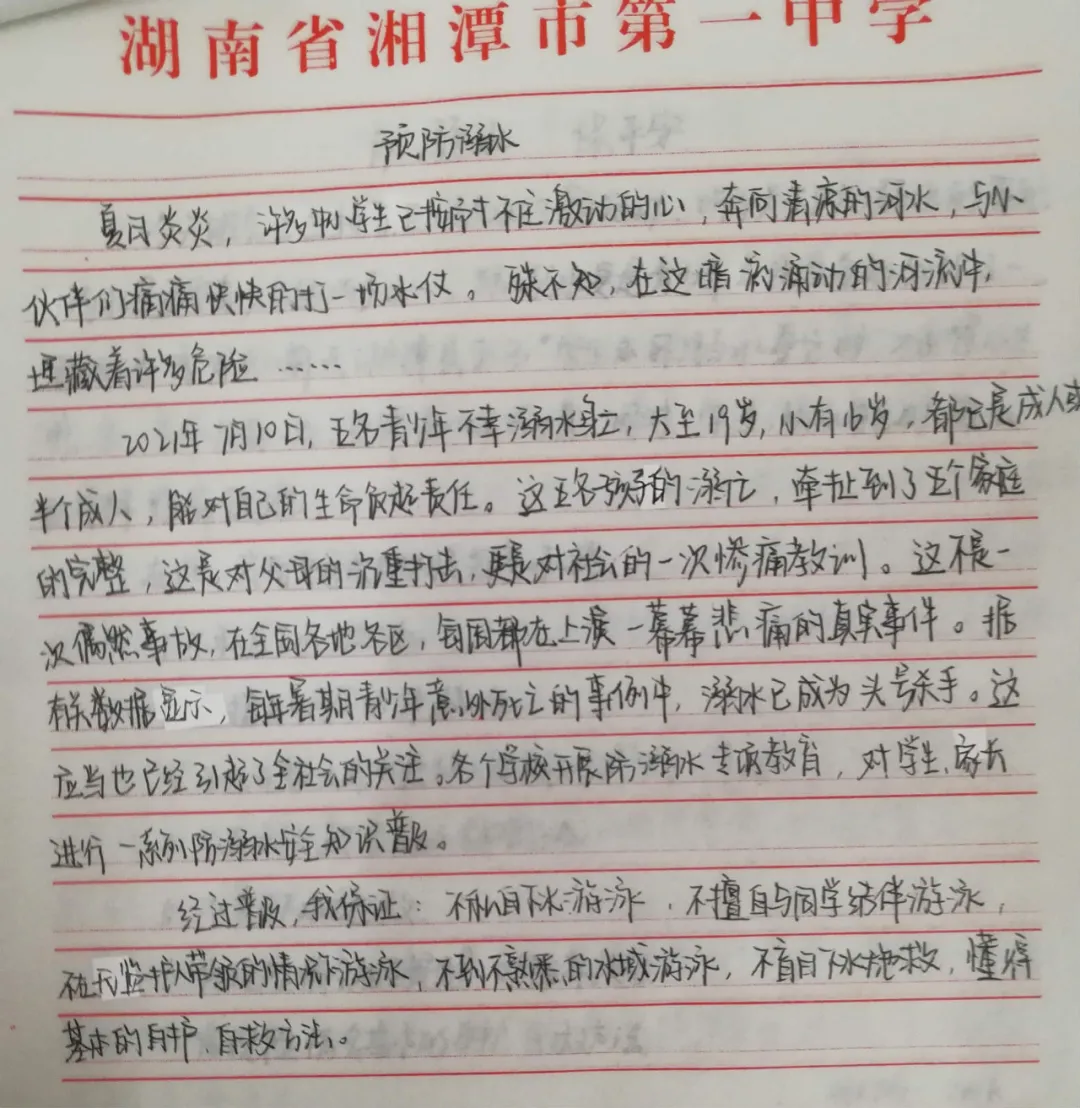 湖南省湘潭市第一中学
预防溺水
夏日炎炎，许多中小学生已按耐不住激动的心，奔向清凉的河水，与小
伙伴们痛痛快快的打一场水仗。殊不知，在这暗流涌动的河流中，
埋藏着许多危险……
2021年7月10日，五名青少年不幸溺水身亡，大至19岁，小有16岁，都已是成人或
半个成人，能对自己的生命负起责任。这五名孩子的溺亡，牵扯到了五个家庭
的完整，这是对父母的沉重打击，更是对社会的一次惨痛教训。这不是一
次偶然事故，在全国各地各区，每周都在上演一幕幕悲痛的真实事件。据
有关数据显示，每年暑期青少年意外死亡的事例中，溺水已成为头号杀手。这
应当也已经引起了全社会的关注。各个学校开展防溺水专项教育，对学生、家长
进行一系列防溺水安全知识普及。
经过普及，我保证：不私自下水游泳，不擅自与同学结伴游泳，
不在无监护人带领的情况下游泳，不到不熟悉的水域游泳，不盲目下水施救，懂得
基本的自护、自救方法。